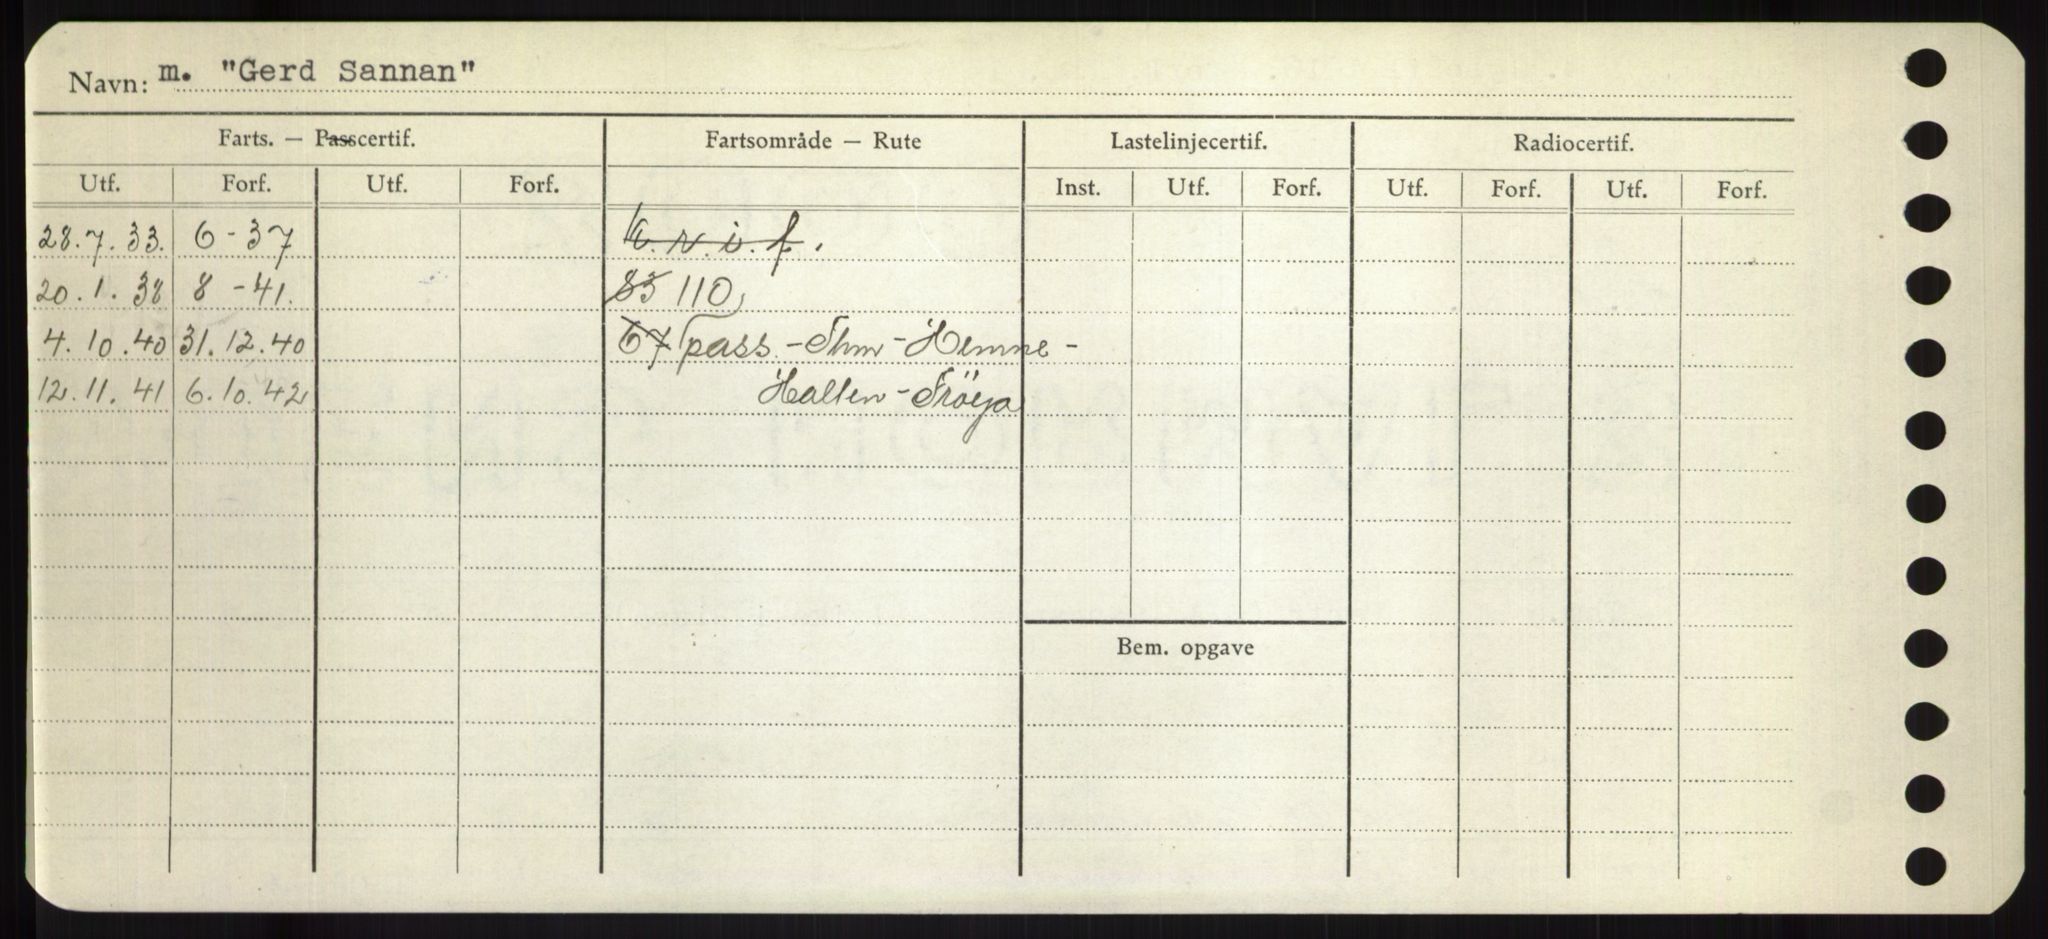 Navn: m. "Gerd Sannan"
Farts. — Passcertif. Fartsområde — Rute Lastelinjecertif. Radiocertif.
Utf. Forf. Utf. Forf. Inst. Utf. Forf. Utf. Forf. Utf. Forf.
28.7.33. 6-37 k.v.i.f.
20.1.38 8-41. 83 110
4.10.40 31.12.40 67 pass - Thm - Hemne -
12.11.41 6.10.42 Halten - Fröya
Bem. opgave